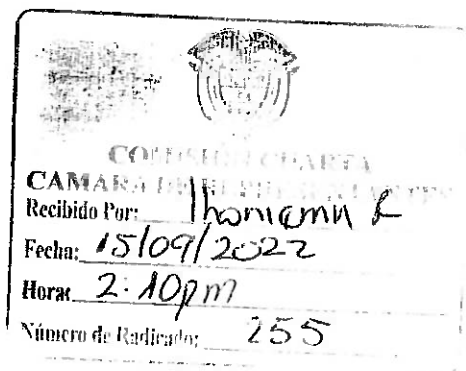 COMISIÓN CUARTA
CAMARA DE REPRESENTANTES
Recibido Por:
Fecha: 15/09/2022
Hora: 2:10pm
Número de Radicado: 255